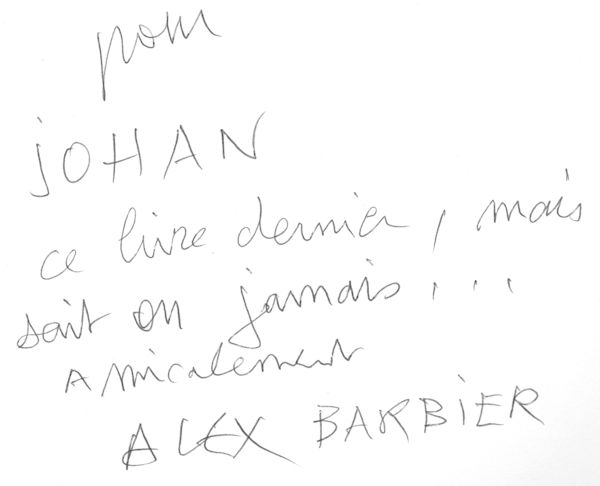 pour
JOHAN
ce livre dernier, mais
sait on jamais...
Amicalement
ALEX BARBIER